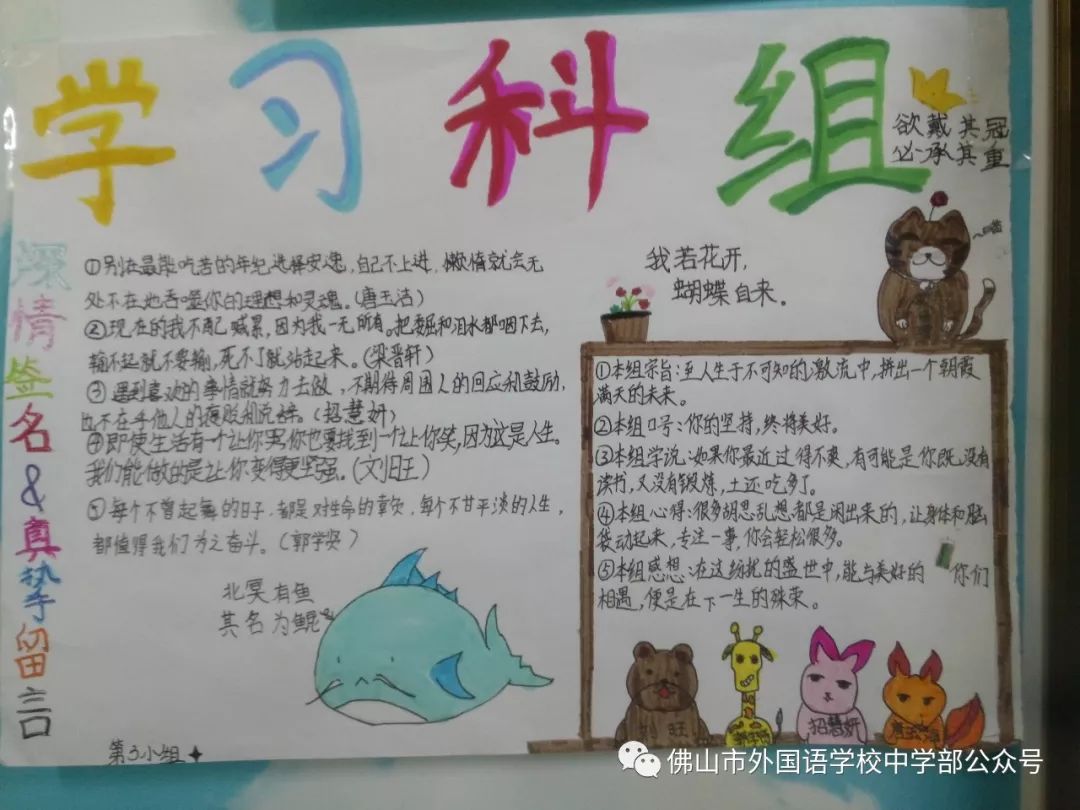 学习科组
欲戴其冠
必承其重
深情签名&真挚留言
①别在最能吃苦的年纪选择安逸,自己不上进,懒惰就会无
处不在地吞噬你的理想和灵魂。(唐玉洁)
②现在的我不配喊累,因为我一无所有。把委屈和泪水都咽下去,
输不起就不要输,死不了就站起来。(梁晋轩)
③遇到喜欢的事情就努力去做,不期待周围人的回应和鼓励,
也不在乎他人的 (招慧妍)
④即使生活有一个让你哭,你也要找到一个让你笑,因为这是人生。
我们能做的是让你变得更坚强。(刘旺)
⑤每个不曾起舞的日子,都是对生命的辜负,每个不甘平淡的人生,
都值得我们为之奋斗。(郭学 )
北冥有鱼
其名为鲲
第3小组
我若花开,
蝴蝶自来。
喵
①本组宗旨:至人生于不可知的激流中,拼出一个朝霞
满天的未来。
②本组口号:你的坚持,终将美好。
③本组学说:如果你最近过得不爽,有可能是你既没有
读书,又没有锻炼,土还吃多了。
④本组心得:很多胡思乱想都是闲出来的,让身体和脑
袋动起来,专注一事,你会轻松很多。
⑤本组感想:在这纷扰的盛世中,能与美好的 你们
相遇,便是在下一生的殊荣。
刘旺
招慧妍
佛山市外国语学校中学部公众号